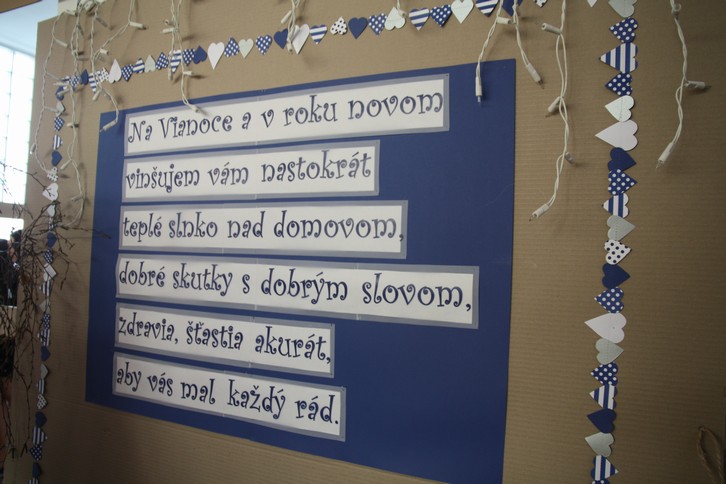 Na Vianoce a v roku novom
vinšujem vám nastokrát
teplé slnko nad domovom,
dobré skutky s dobrým slovom,
zdravia, šťastia akurát,
aby vás mal každý rád.